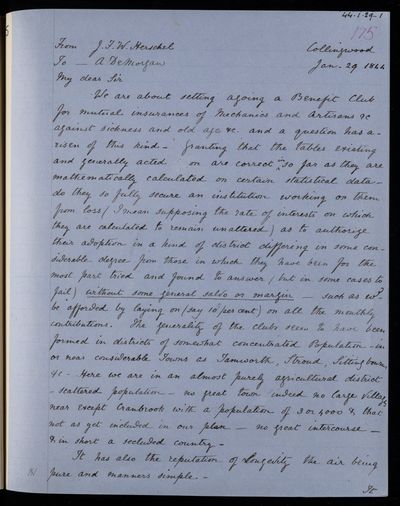 44-1-29-1
175
From J.F.W. Herschel Collingwood
To — A DeMorgan Jan. 29 1844
My dear Sir
We are about setting agoing a Benefit Club
for mutual insurances of Mechanics and Artisans &c
against sickness and old age &c. and a question has a-
risen of this kind— Granting that the tables existing
and generally acted on are correct in so far as they are
mathematically calculated on certain statistical data—
do they so fully secure an institution working on them
from loss (I mean supposing the rate of interests on which
they are calculated to remain unaltered) as to authorize
their adoption in a kind of district differing in some con-
siderable degree from those in which they have been for the
most part tried and found to answer (but in some cases to
fail) without some general salvo or margin — such as wd
be afforded by laying on (say 10 per cent) on all the monthly
contributions. The generality of the clubs seem to have been
formed in districts of somewhat concentrated Population — in
or near considerable Towns as Tamworth, Stroud, Sittingbourne,
&c — Here we are in an almost purely agricultural district
— scattered population — no great town indeed no large Village
near except Cranbrook with a population of 3 or 4000 & that
not as yet included in our plan — no great intercourse —
& in short a secluded country —
It has also the reputation of Longevity the air being
pure and manners simple. —
It